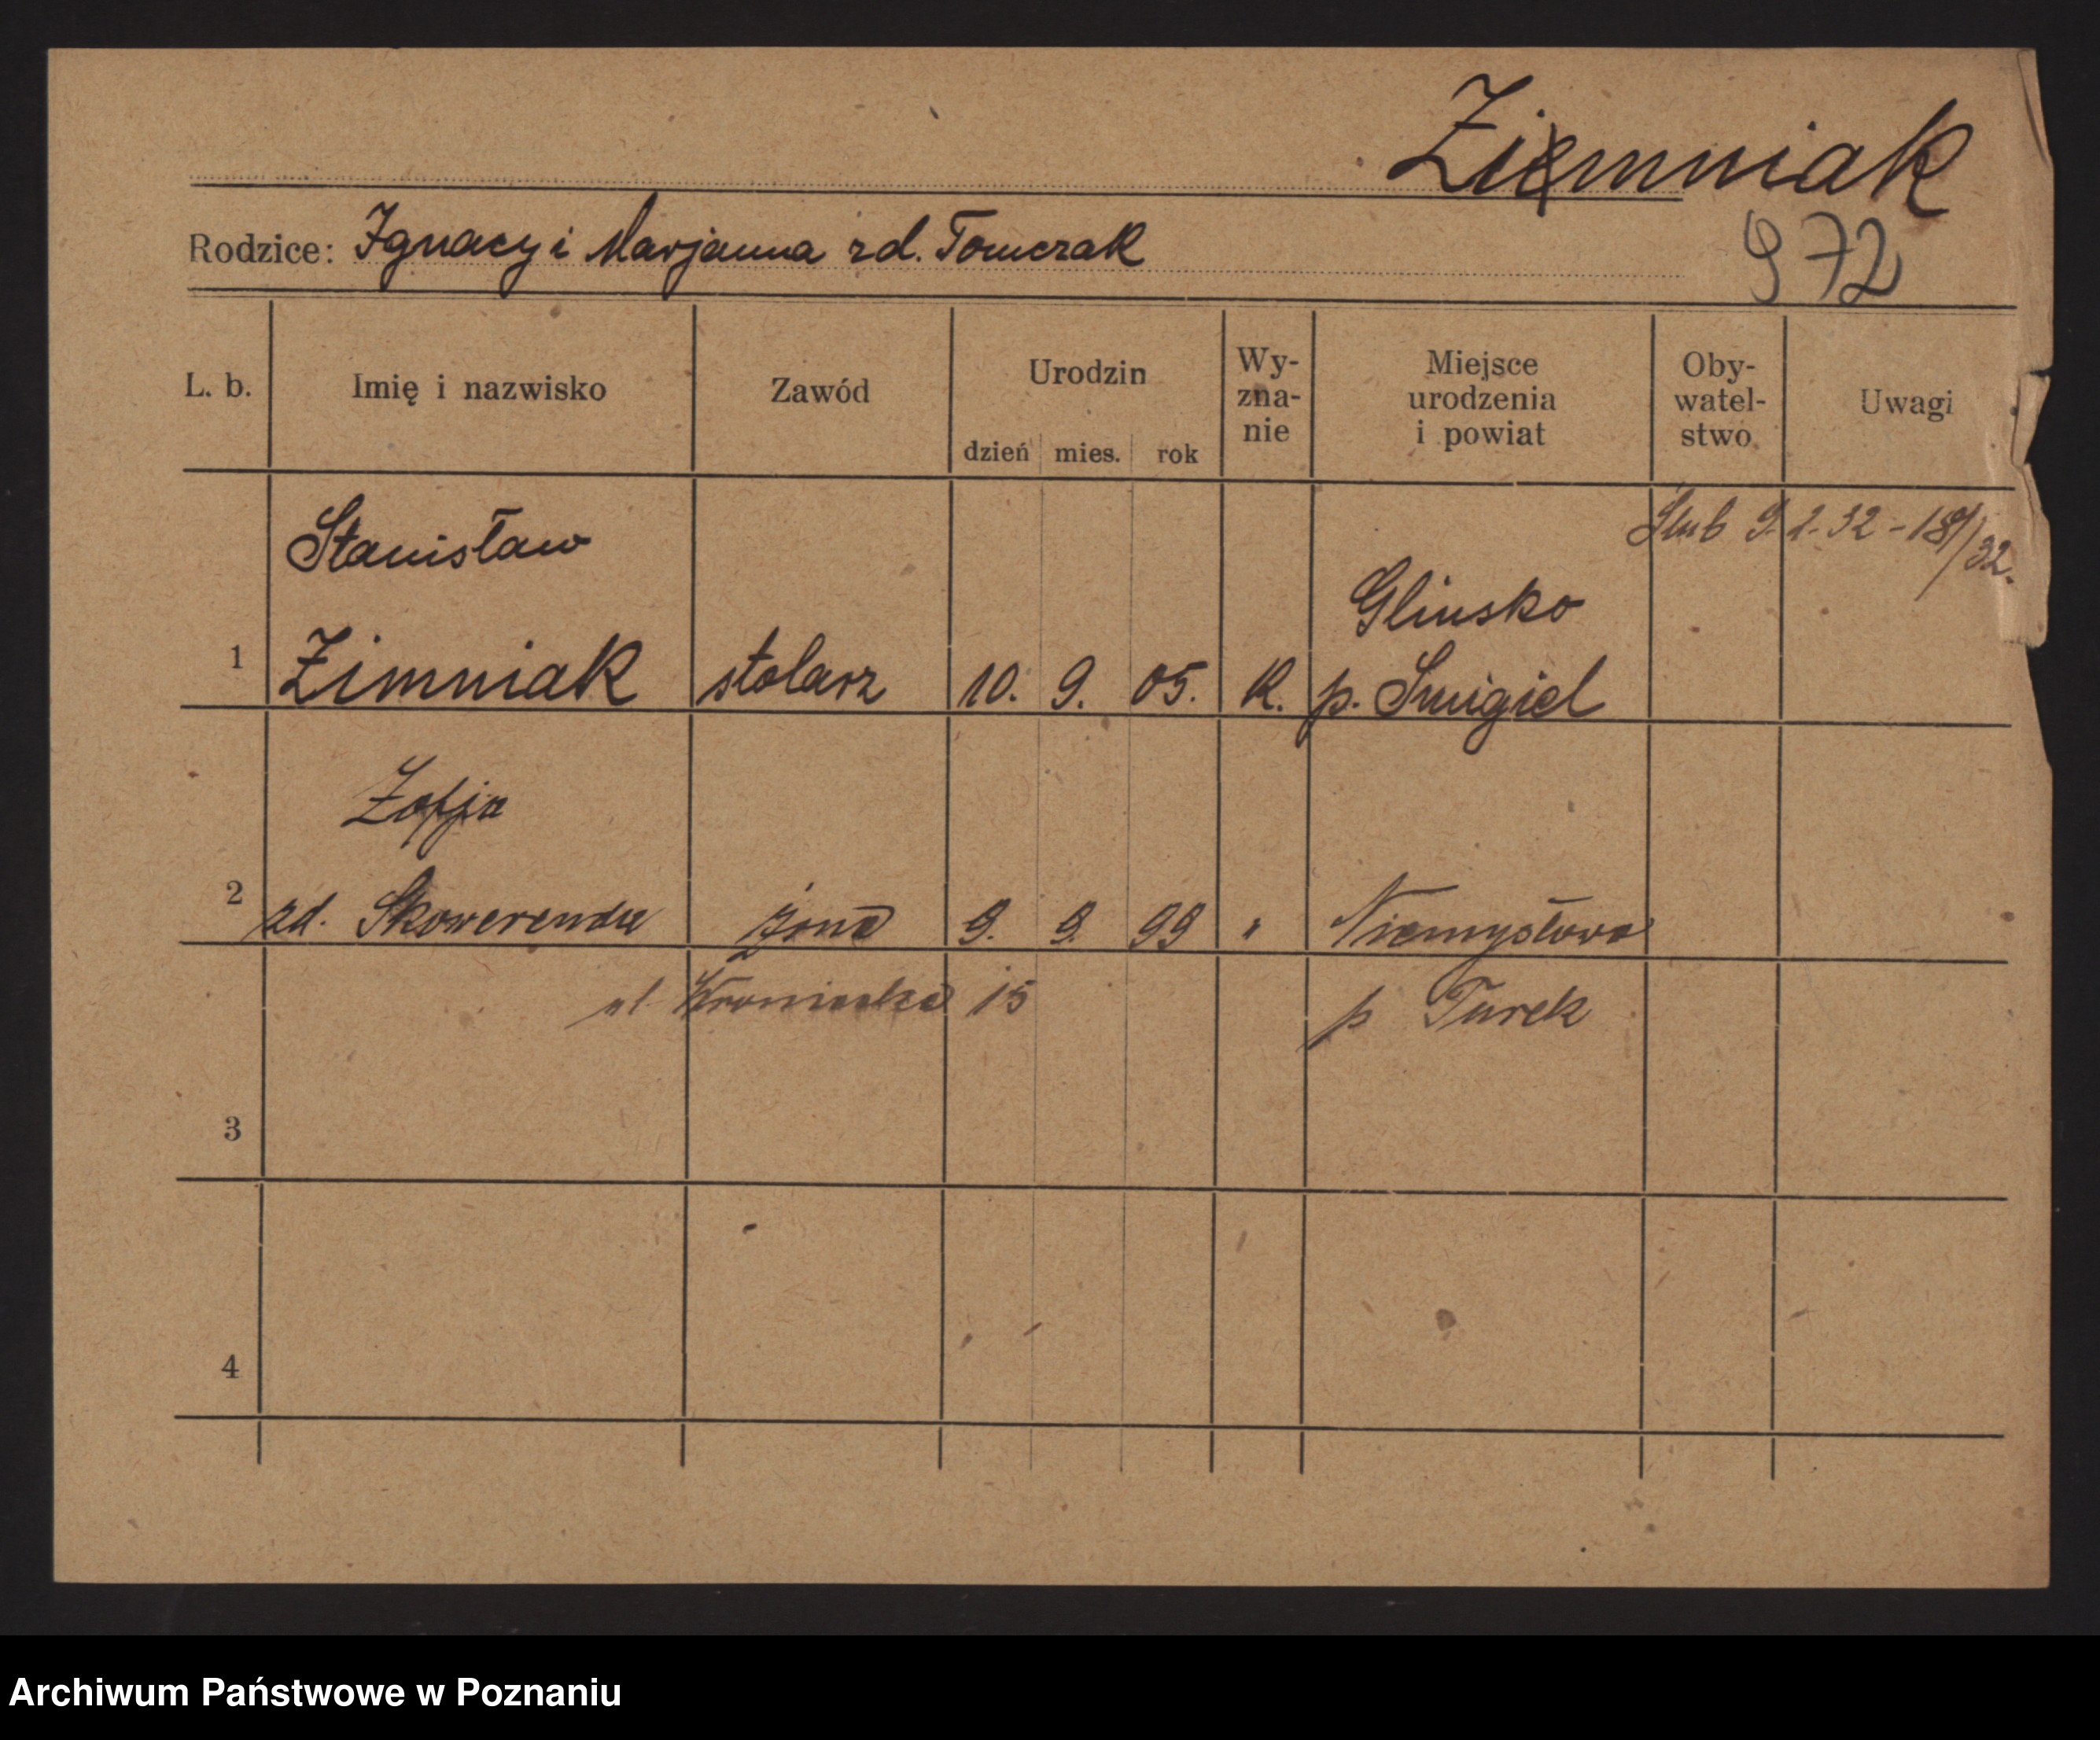 Zimniak
Rodzice: Ignacy i Marjanna zd. Tomczak
972
L. b. Imię i nazwisko Zawód Urodzin dzień mies. rok Wy-znanie Miejsce urodzenia i powiat Oby-watel-stwo Uwagi
Ślub 9.2.32 - 181/32.
Stanisław Glinsko
1 Zimniak stolarz 10. 9. 05. K. p. Smigiel
Zofja
2 zd. Skowerenda żona 9. 9. 99 " Niemysłowo
ul. 15 p Turek
3
4
Archiwum Państwowe w Poznaniu